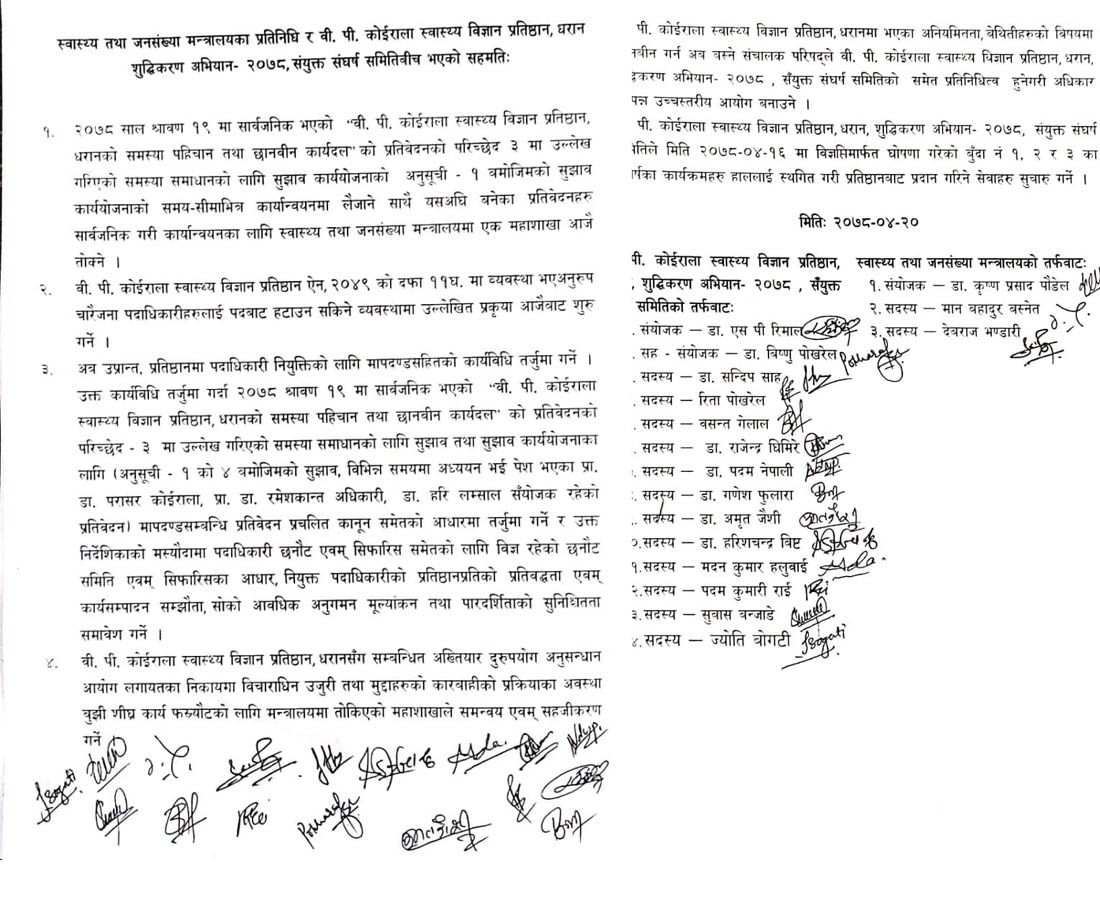 स्वास्थ्य तथा जनसंख्या मन्त्रालयका प्रतिनिधि र वी. पी. कोईराला स्वास्थ्य विज्ञान प्रतिष्ठान, धरान
शुद्धिकरण अभियान- २०७८, संयुक्त संघर्ष समितिवीच भएको सहमतिः
१. २०७८ साल श्रावण १९ मा सार्वजनिक भएको "वी. पी. कोईराला स्वास्थ्य विज्ञान प्रतिष्ठान,
धरानको समस्या पहिचान तथा छानवीन कार्यदल" को प्रतिवेदनको परिच्छेद ३ मा उल्लेख
गरिएको समस्या समाधानको लागि सुझाव कार्ययोजनाको अनुसूची - १ वमोजिमको सुझाव
कार्ययोजनाको समय-सीमाभित्र कार्यान्वयनमा लैजाने साथै यसअघि बनेका प्रतिवेदनहरु
सार्वजनिक गरी कार्यान्वयनका लागि स्वास्थ्य तथा जनसंख्या मन्त्रालयमा एक महाशाखा आजै
तोक्ने ।
२. वी. पी. कोईराला स्वास्थ्य विज्ञान प्रतिष्ठान ऐन, २०४९ को दफा ११घ. मा व्यवस्था भएअनुरुप
चारैजना पदाधिकारीहरुलाई पदवाट हटाउन सकिने व्यवस्थामा उल्लेखित प्रकृया आजैवाट शुरु
गर्ने ।
३. अव उप्रान्त, प्रतिष्ठानमा पदाधिकारी नियुक्तिको लागि मापदण्डसहितको कार्यविधि तर्जुमा गर्ने ।
उक्त कार्यविधि तर्जुमा गर्दा २०७८ श्रावण १९ मा सार्वजनिक भएको "वी. पी. कोईराला
स्वास्थ्य विज्ञान प्रतिष्ठान, धरानको समस्या पहिचान तथा छानवीन कार्यदल" को प्रतिवेदनको
परिच्छेद - ३ मा उल्लेख गरिएको समस्या समाधानको लागि सुझाव तथा सुझाव कार्ययोजनाका
लागि (अनुसूची - १ को ४ वमोजिमको सुझाव, विभिन्न समयमा अध्ययन भई पेश भएका प्रा.
डा. परासर कोईराला, प्रा. डा. रमेशकान्त अधिकारी, डा. हरि लम्साल सँयोजक रहेको
प्रतिवेदन) मापदण्डसम्वन्धि प्रतिवेदन प्रचलित कानून समेतको आधारमा तर्जुमा गर्ने र उक्त
निर्देशिकाको मस्यौदामा पदाधिकारी छनौट एवम् सिफारिस समेतको लागि विज्ञ रहेको छनौट
समिति एवम् सिफारिसका आधार, नियुक्त पदाधिकारीको प्रतिष्ठानप्रतिको प्रतिवद्धता एवम्
कार्यसम्पादन सम्झौता, सोको आवधिक अनुगमन मूल्यांकन तथा पारदर्शिताको सुनिश्चितता
समावेश गर्ने ।
४. वी. पी. कोईराला स्वास्थ्य विज्ञान प्रतिष्ठान, धरानसँग सम्वन्धित अख्तियार दुरुपयोग अनुसन्धान
आयोग लगायतका निकायमा विचाराधिन उजुरी तथा मुद्दाहरुको कारवाहीको प्रक्रियाका अवस्था
वुझी शीघ्र कार्य फछ्र्यौटको लागि मन्त्रालयमा तोकिएको महाशाखाले समन्वय एवम् सहजीकरण
गर्ने
पी. कोईराला स्वास्थ्य विज्ञान प्रतिष्ठान, धरानमा भएका अनियमितता, वेथितीहरुको विषयमा
नवीन गर्न अव वस्ने संचालक परिषद्ले वी. पी. कोईराला स्वास्थ्य विज्ञान प्रतिष्ठान, धरान,
द्धिकरण अभियान- २०७८ , सँयुक्त संघर्ष समितिको समेत प्रतिनिधित्व हुनेगरी अधिकार
पन्न उच्चस्तरीय आयोग वनाउने ।
पी. कोईराला स्वास्थ्य विज्ञान प्रतिष्ठान, धरान, शुद्धिकरण अभियान- २०७८, संयुक्त संघर्ष
मितिले मिति २०७८-०४-१६ मा विज्ञप्तिमार्फत घोषणा गरेको वुँदा नं १, २ र ३ का
र्पका कार्यक्रमहरु हाललाई स्थगित गरी प्रतिष्ठानवाट प्रदान गरिने सेवाहरु सुचारु गर्ने ।
मितिः २०७८-०४-२०
पी. कोईराला स्वास्थ्य विज्ञान प्रतिष्ठान,
, शुद्धिकरण अभियान- २०७८ , सँयुक्त
समितिको तर्फवाटः
. संयोजक – डा. एस पी रिमाल
. सह - संयोजक – डा. विष्णु पोखरेल
. सदस्य – डा. सन्दिप साह
. सदस्य – रिता पोखरेल
. सदस्य – वसन्त गेलाल
. सदस्य – डा. राजेन्द्र घिमिरे
. सदस्य – डा. पदम नेपाली
. सदस्य – डा. गणेश फुलारा
. सदस्य – डा. अमृत जैशी
०.सदस्य – डा. हरिशचन्द्र विष्ट
१.सदस्य – मदन कुमार हलुवाई
२.सदस्य – पदम कुमारी राई
३.सदस्य – सुवास वन्जाडे
४.सदस्य – ज्योति वोगटी
स्वास्थ्य तथा जनसंख्या मन्त्रालयको तर्फवाटः
१. संयोजक – डा. कृष्ण प्रसाद पौडेल
२. सदस्य – मान वहादुर वस्नेत
३. सदस्य – देवराज भण्डारी